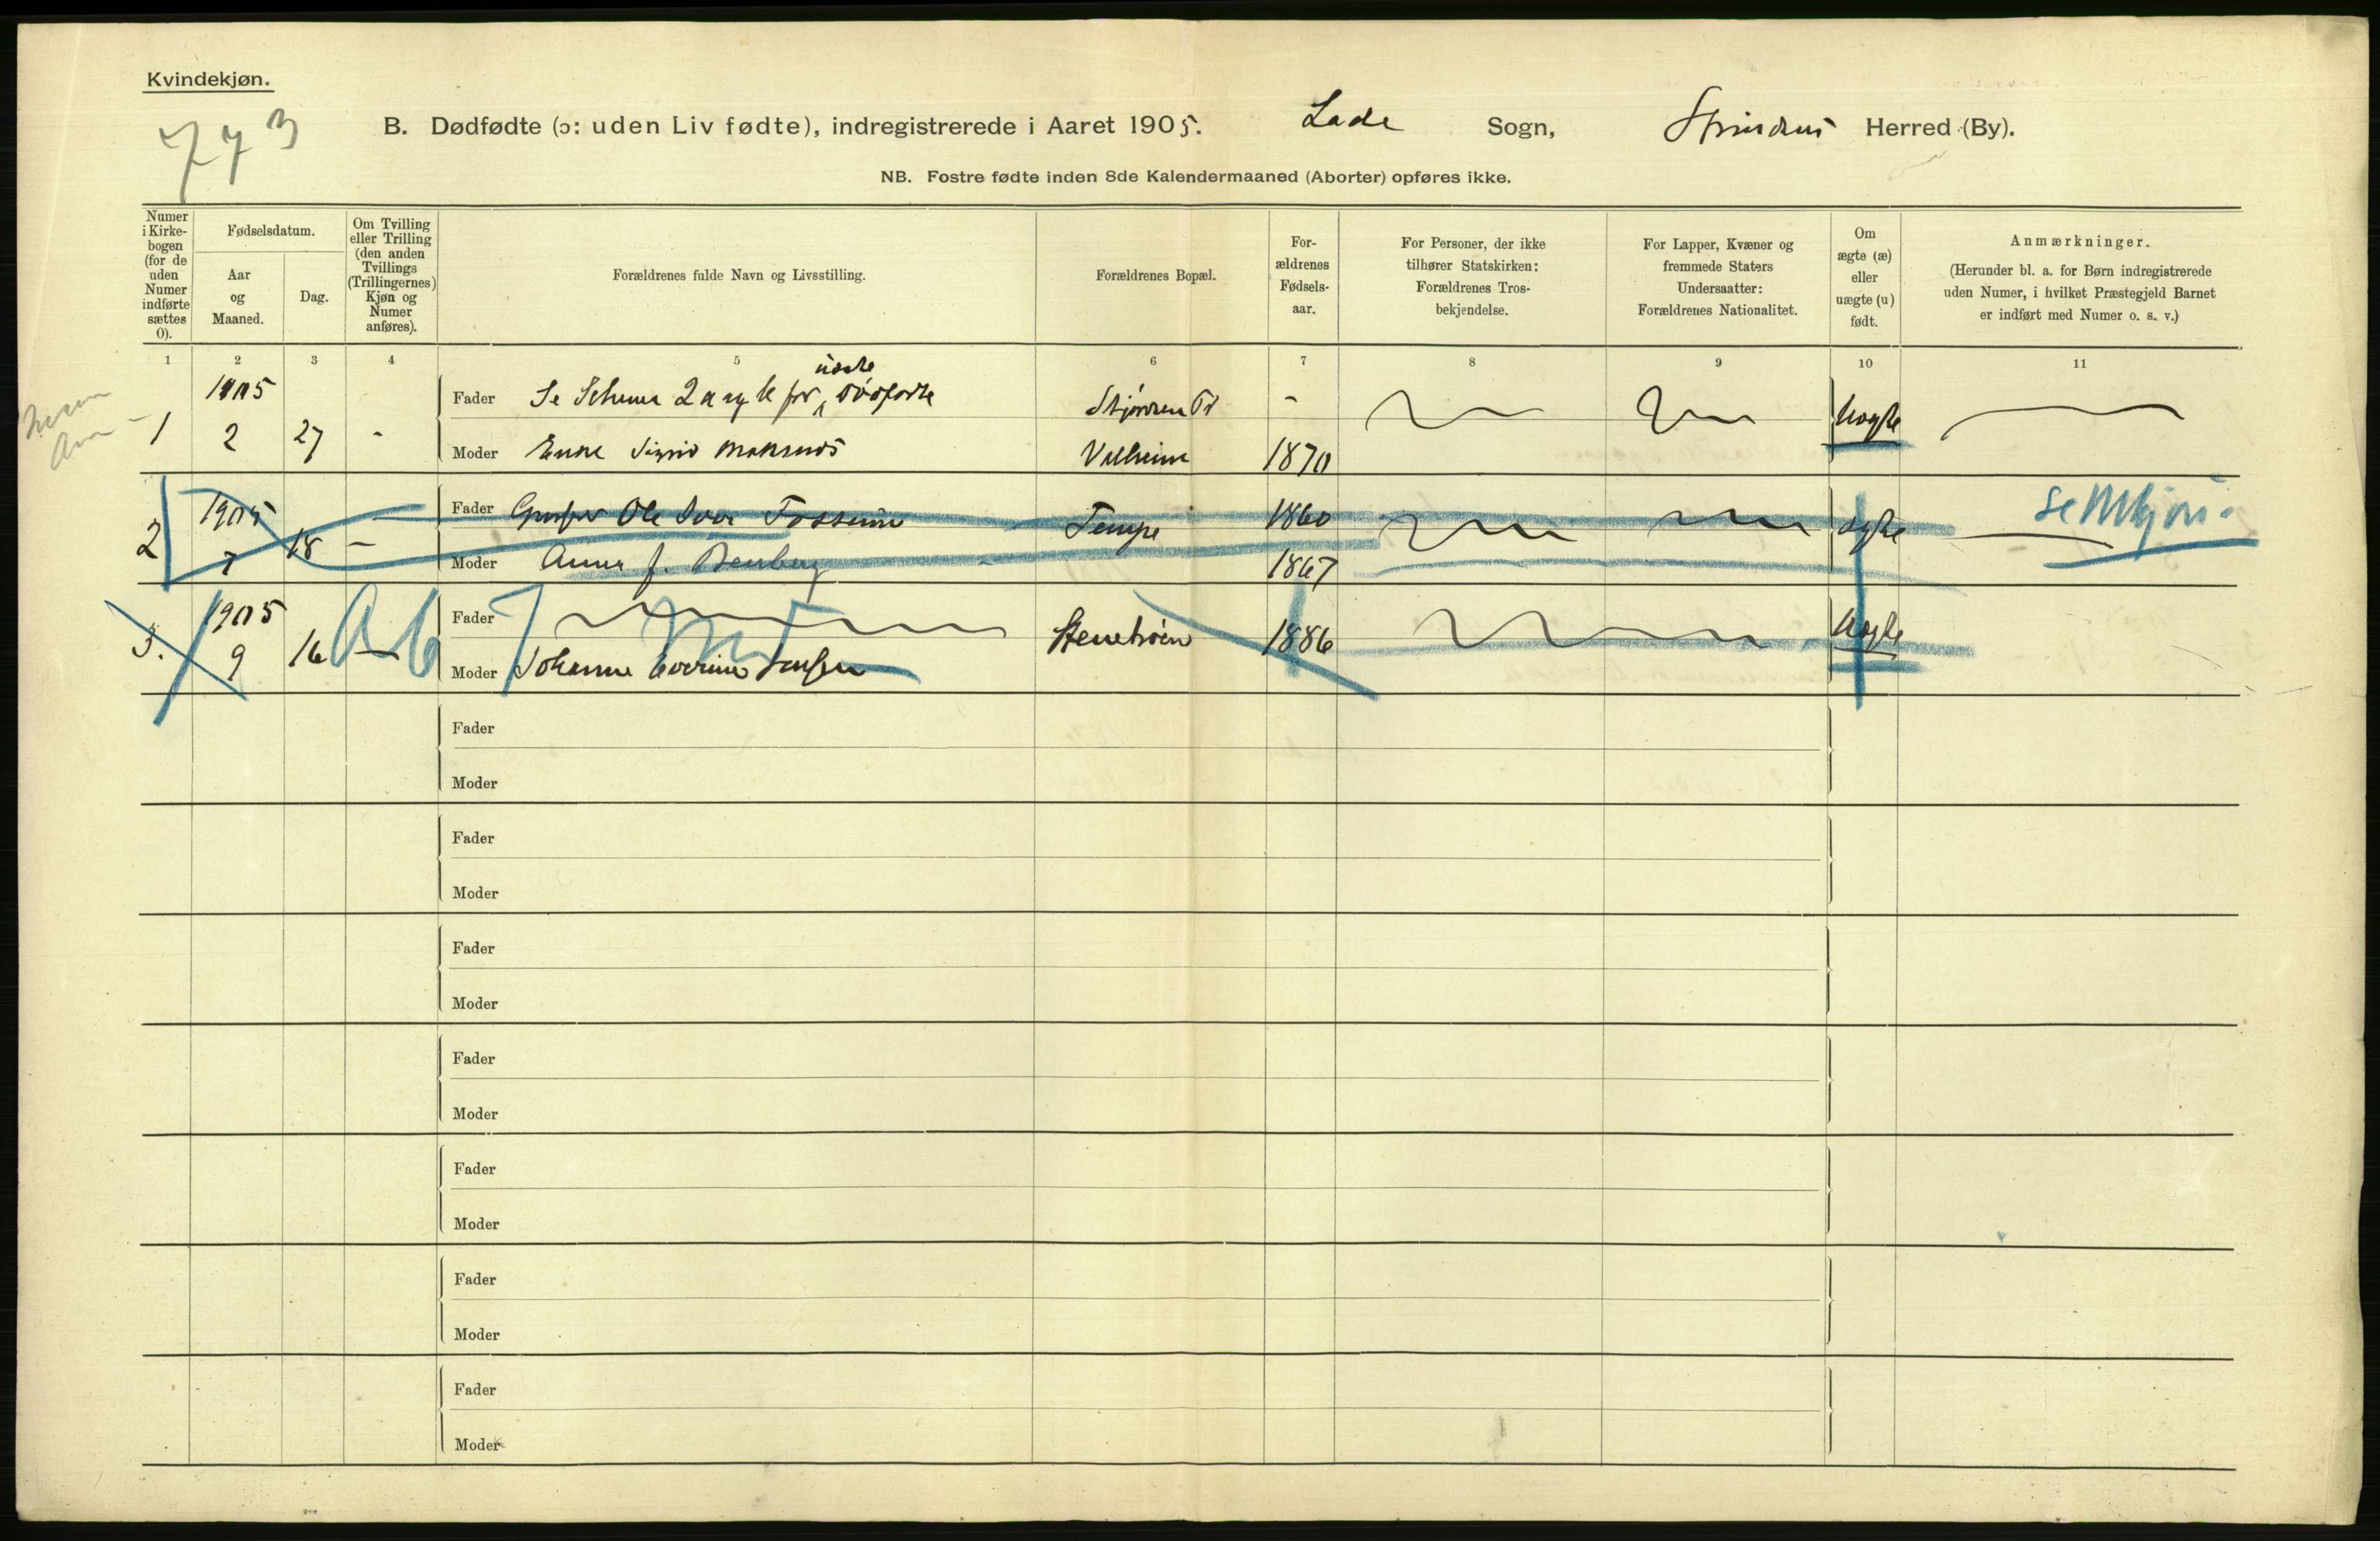 Kvindekjøn.
773
B. Dødfødte (ɔ: uden Liv fødte), indregistrerede i Aaret 1905. Lade Sogn, Strindens Herred (By).
NB. Fostre fødte inden 8de Kalendermaaned (Aborter) opføres ikke.
Numer i Kirke-bogen (for de uden Numer indførte sættes 0).
Fødselsdatum.
Aar og Maaned.
Dag.
Om Tvilling eller Trilling (den anden Tvillings (Trillingernes) Kjøn og Numer anføres).
Forældrenes fulde Navn og Livsstilling.
Forældrenes Bopæl.
For-ældrenes Fødsels-aar.
For Personer, der ikke tilhører Statskirken: Forældrenes Tros-bekjendelse.
For Lapper, Kvæner og fremmede Staters Undersaatter: Forældrenes Nationalitet.
Om ægte (æ) eller uægte (u) født.
Anmærkninger.
(Herunder bl. a. for Børn indregistrerede uden Numer, i hvilket Præstegjeld Barnet er indført med Numer o. s. v.)
1 2 3 4 5 6 7 8 9 10 11
1905 Fader Se Schema 2 for uægte dødfødte -
1 2 27 - Moder Enke Sigrid 1870 Uægte
1905 Fader Ole Fossum Tempe 1860
2 7 18 - Moder Anna f. 1867 ægte Se Mkjøn.
1905 Fader
3. 9 16 - Ab Moder Johanne Jensen 1886 Uægte
Fader
Moder
Fader
Moder
Fader
Moder
Fader
Moder
Fader
Moder
Fader
Moder
Fader
Moder